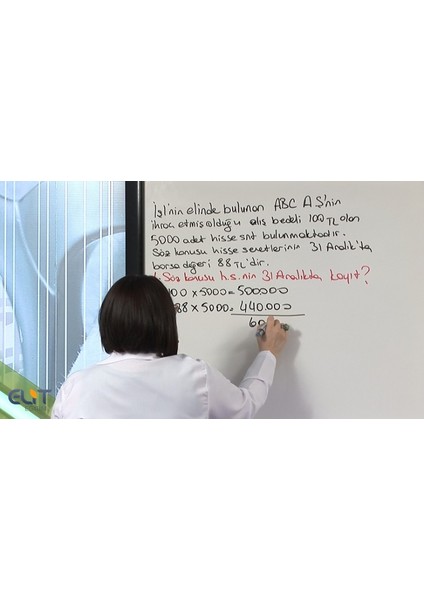 İşl'nin elinde bulunan ABC A.Ş'nin
ihraç etmiş olduğu alış bedeli 100 TL olan
5000 adet hisse snt bulunmaktadır.
Söz konusu hisse senetlerinin 31 Aralık'ta
borsa değeri 88 TL'dir.
Söz konusu h.s.nin 31 Aralıkta kayıt?
100 x 5000 = 500000
88 x 5000 = 440.000
60
ELİT